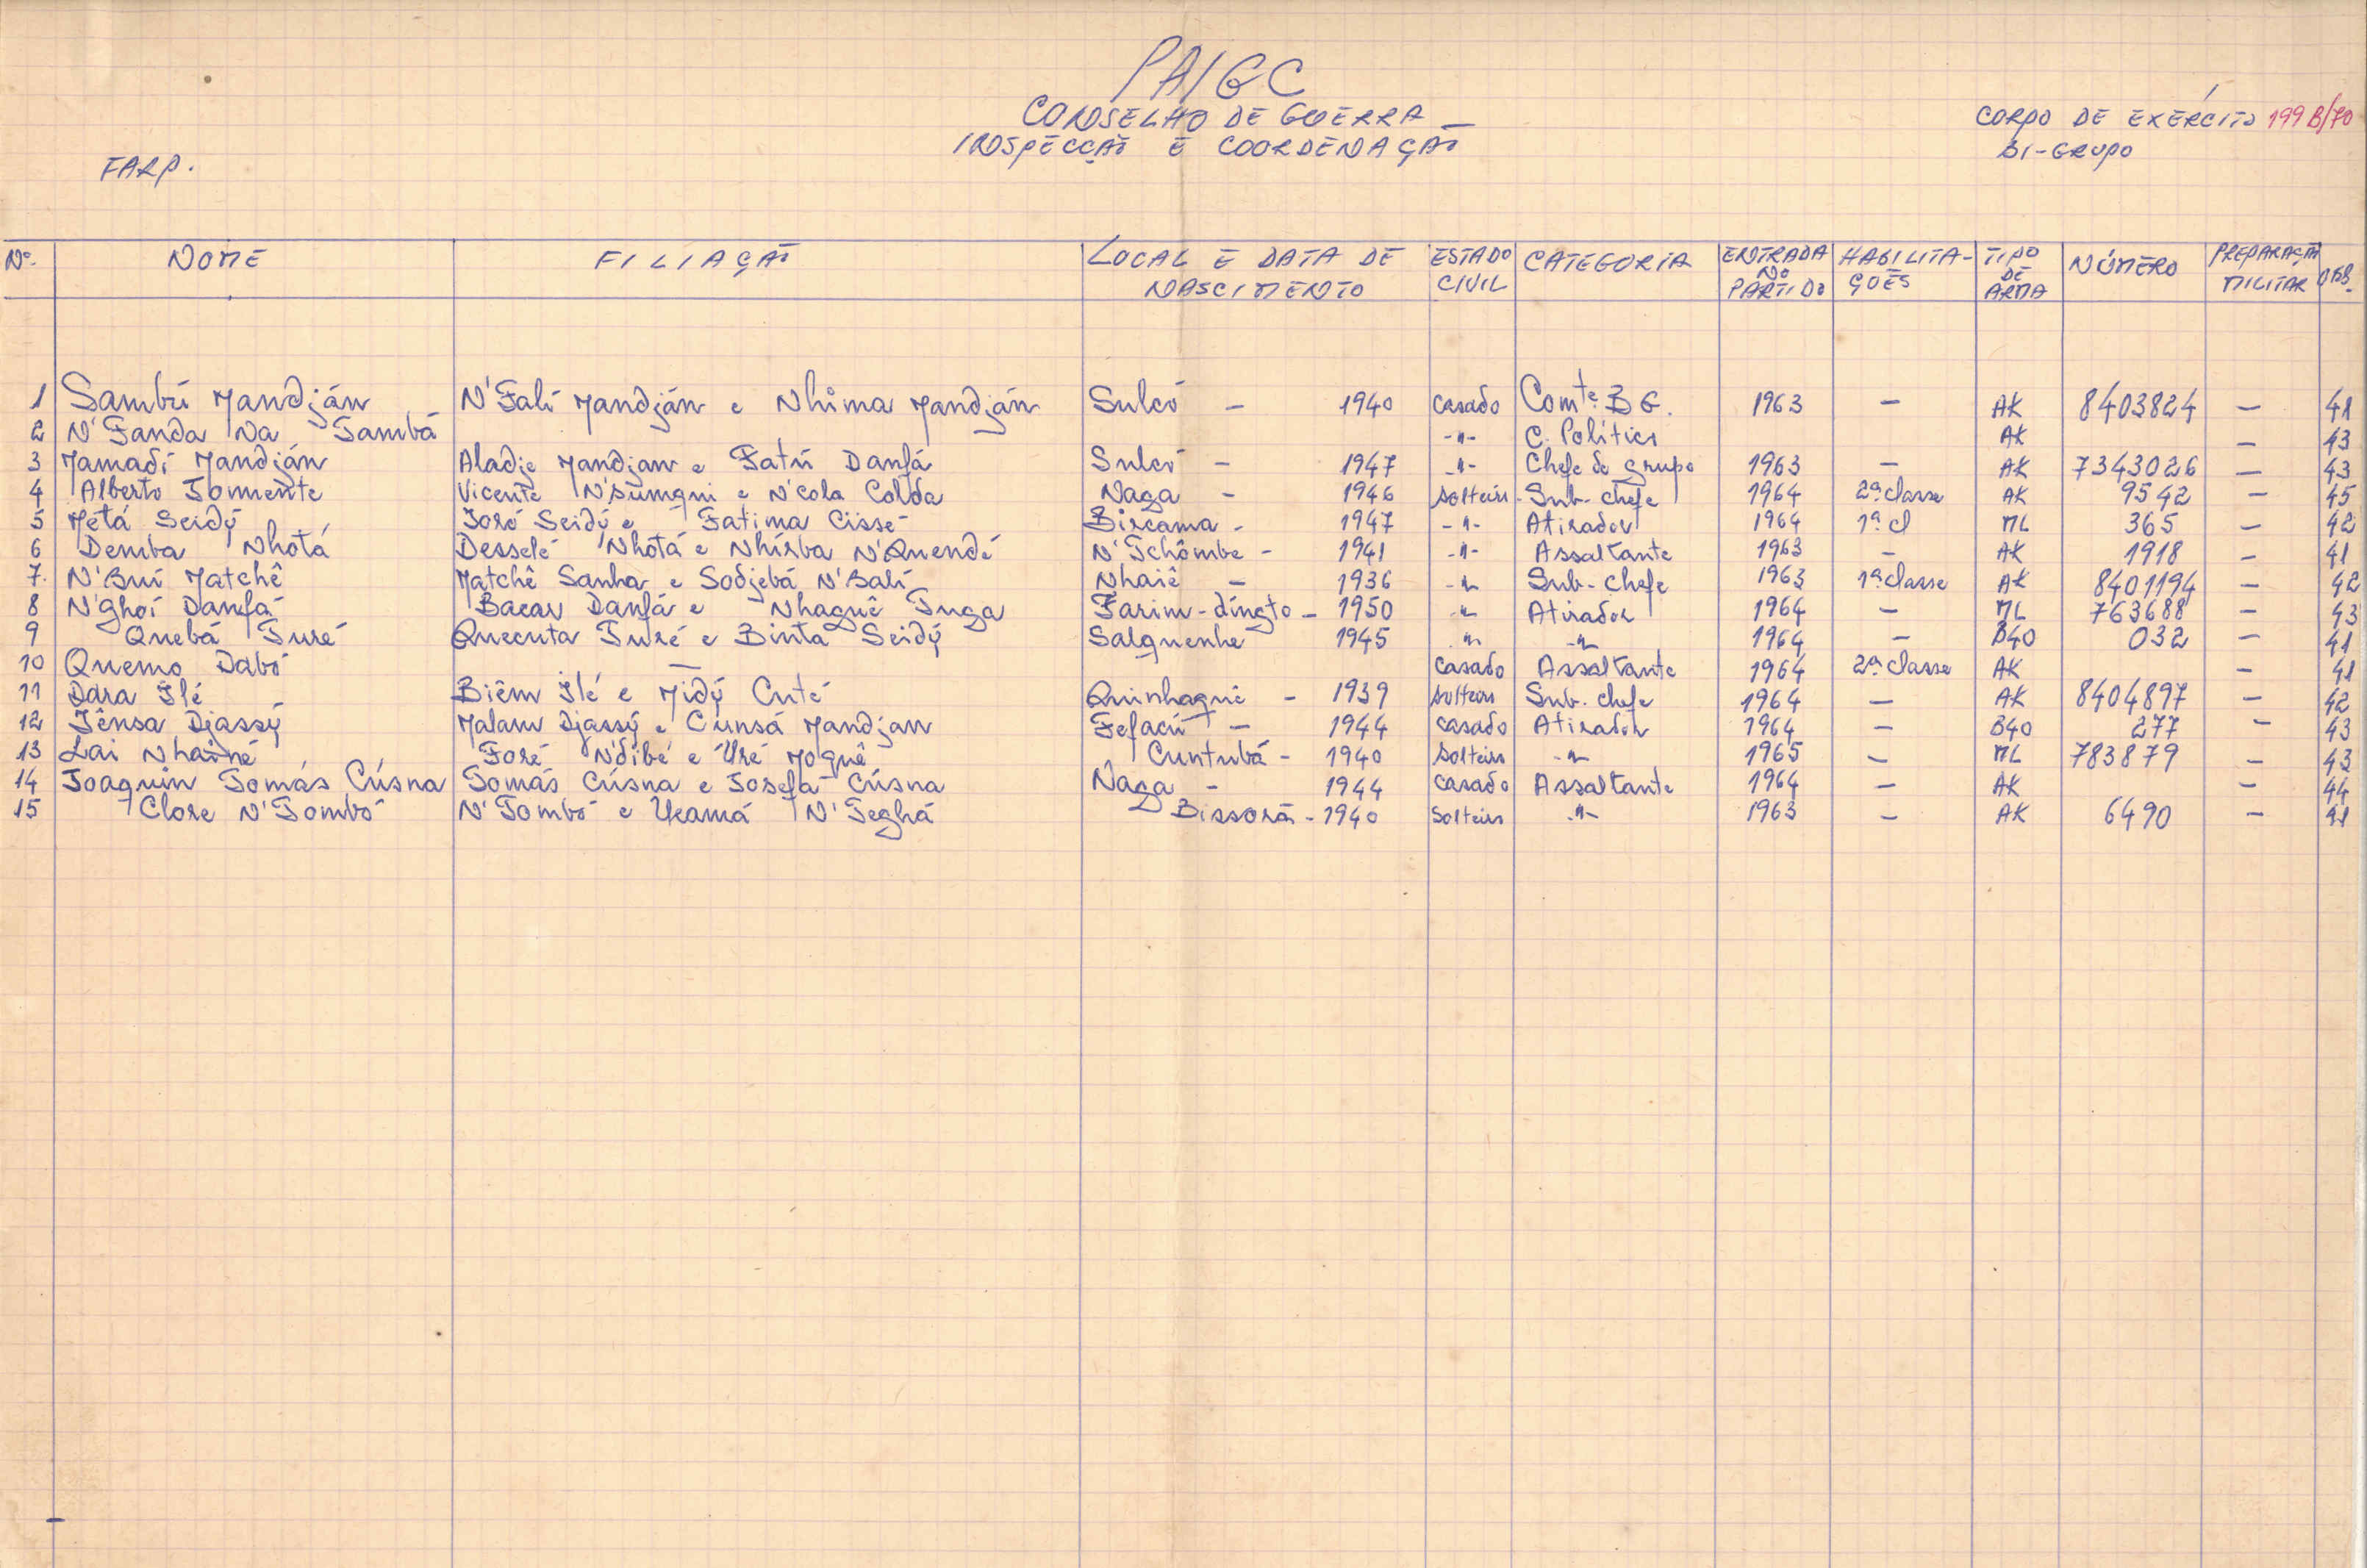 PAIGC
CONSELHO DE GUERRA
INSPECÇÃO E COORDENAÇÃO
CORPO DE EXÉRCITO 199 B/70
BI-GRUPO
FARP.
Nº. NOME FILIAÇÃO LOCAL E DATA DE NASCIMENTO ESTADO CIVIL CATEGORIA ENTRADA NO PARTIDO HABILITA-ÇÕES TIPO DE ARMA NÚMERO PREPARAÇÃO MILITAR OBS.
1 Sambú Mandján N'Fali Mandján e Nhima Mandján Sulcó - 1940 casado Comte. B G. 1963 - AK 8403824 - 41
2 N'Fanda Na Tambá -"- C. Político AK - 43
3 Mamadí Mandján Aladje Mandjan e Fatú Danfá Sulcó - 1947 -"- Chefe de grupo 1963 - AK 7343026 - 43
4 Alberto Vicente e N'cola Colda Naga - 1946 solteiro - Sub-chefe 1964 2ª classe AK 9542 - 45
5 Metá Seidý José Seidý e Fatima Cissé Bircama - 1947 -"- Atirador 1964 1ª cl ML 365 - 42
6 Demba Nhotá Desselé Nhotá e Nhírba N'Quendé N'Tchômbe - 1941 -"- Assaltante 1963 - AK 1918 - 41
7. N'Bui Matchê Matchê Sanha e Sodjebá N'Balí Nhaiê - 1936 -"- Sub-chefe 1963 1ª classe AK 8401194 - 42
8 N'ghoí Danfá Bacar Danfá e Nhaguê Tuga Farim-díngto - 1950 -"- Atirador 1964 - ML 763688 - 43
9 Quebá Turé Quecuta Turé e Binta Seidý Salquenhe 1945 -"- -"- 1964 - B40 032 - 41
10 Quemo Dabó - casado Assaltante 1964 2ª classe AK - 41
11 Dara Ilé Biêm Ilé e Midý Cuté Quinhaquê - 1939 solteiro Sub-chefe 1964 - AK 8404897 - 42
12 Jênsa Djassý Malam Djassý e Cúnsá Mandjan Fefacú - 1944 casado Atirador 1964 - B40 277 - 43
13 Lai Nhainé Foré N'dibé e Uré Moquê Cuntubá - 1940 solteiro -"- 1965 - ML 783879 - 43
14 Joaquin Tomás Cúsna Tomás Cúsna e Josefa Cúsna Naga - 1944 casado Assaltante 1964 - AK - 44
15 Clore N'Tombó N'Tombó e Ucamá N'Teghá Bissorã - 1940 solteiro -"- 1963 - AK 6490 - 41